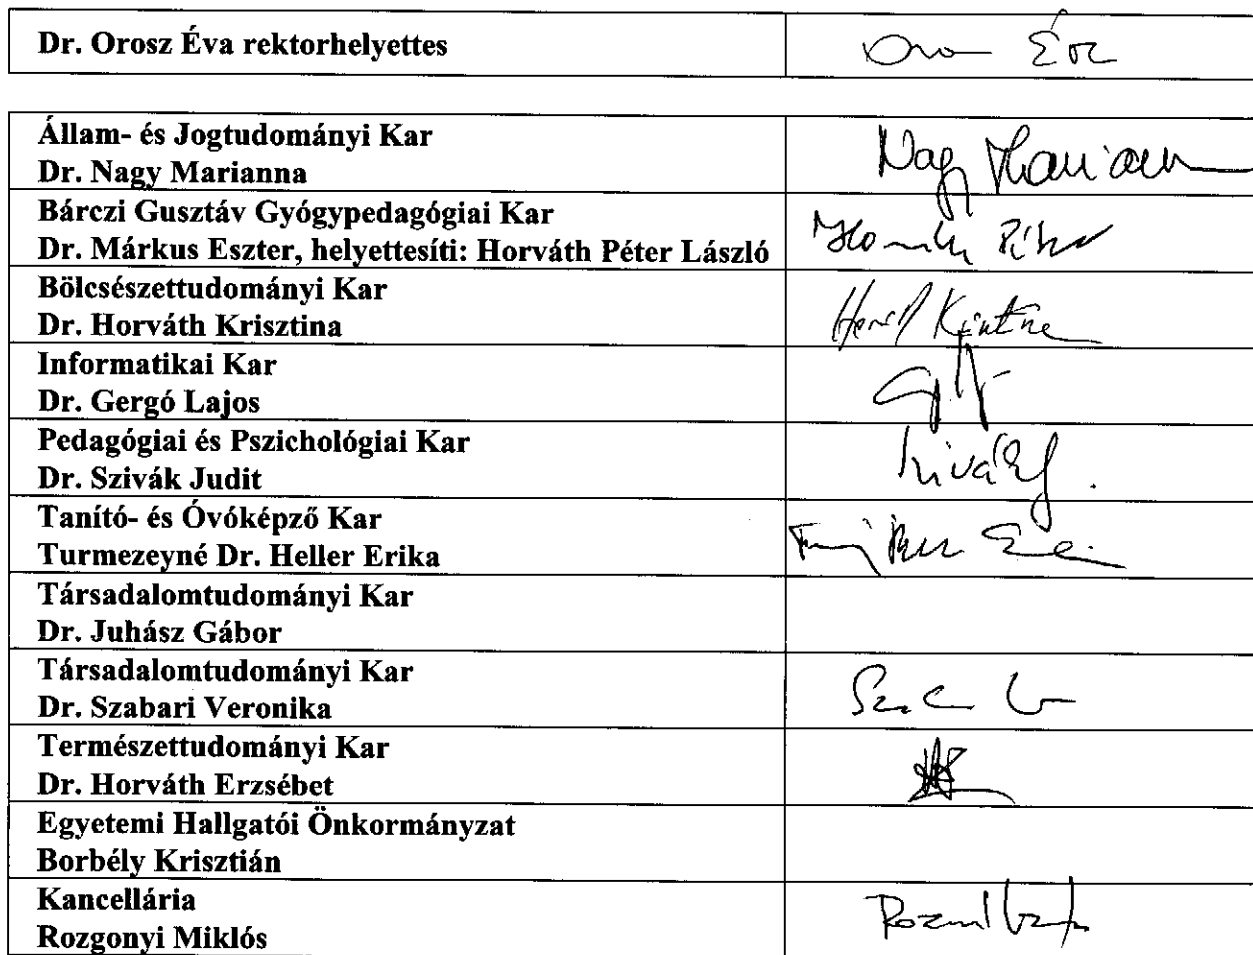 Dr. Orosz Éva rektorhelyettes
Állam- és Jogtudományi Kar
Dr. Nagy Marianna
Nagy Mariann
Bárczi Gusztáv Gyógypedagógiai Kar
Dr. Márkus Eszter, helyettesíti: Horváth Péter László
Bölcsészettudományi Kar
Dr. Horváth Krisztina
Informatikai Kar
Dr. Gergó Lajos
Pedagógiai és Pszichológiai Kar
Dr. Szivák Judit
Tanító- és Óvóképző Kar
Turmezeyné Dr. Heller Erika
Társadalomtudományi Kar
Dr. Juhász Gábor
Társadalomtudományi Kar
Dr. Szabari Veronika
Természettudományi Kar
Dr. Horváth Erzsébet
Egyetemi Hallgatói Önkormányzat
Borbély Krisztián
Kancellária
Rozgonyi Miklós